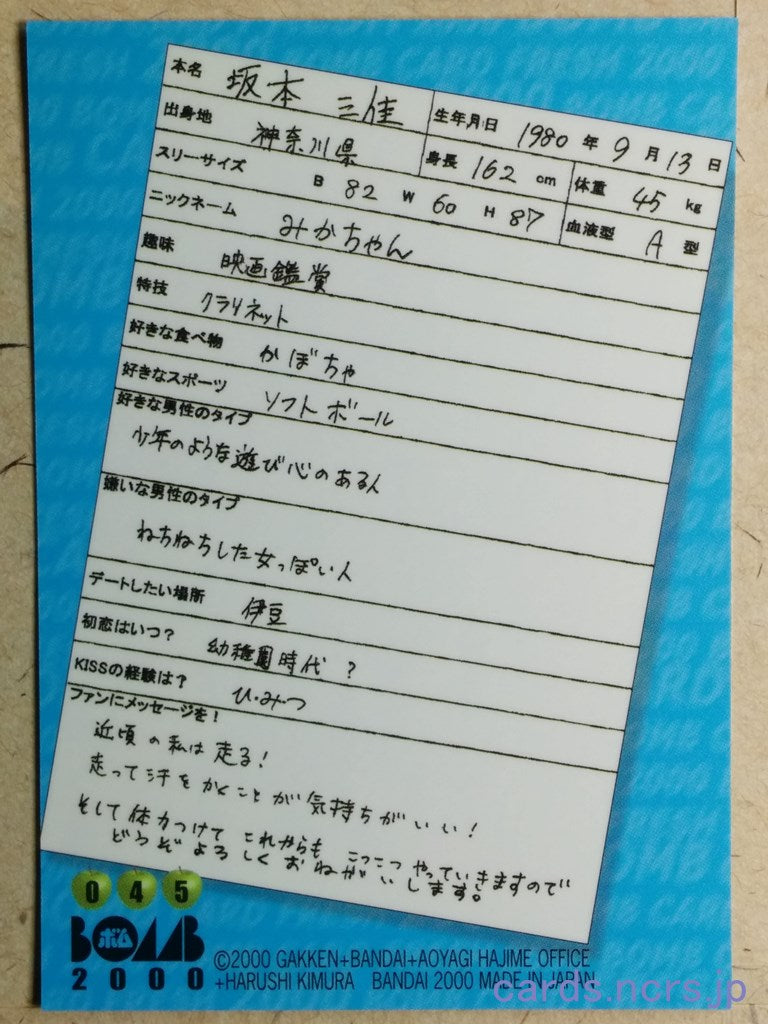 本名 坂本 三佳 生年月日 1980 年 9 月 13 日
出身地 神奈川県 身長 162 cm 体重 45 kg
スリーサイズ B 82 W 60 H 87 血液型 A 型
ニックネーム みかちゃん
趣味 映画鑑賞
特技 クラリネット
好きな食べ物 かぼちゃ
好きなスポーツ ソフトボール
好きな男性のタイプ
少年のような遊び心のある人
嫌いな男性のタイプ
ねちねちした女っぽい人
デートしたい場所 伊豆
初恋はいつ? 幼稚園時代?
KISSの経験は? ひ・み・つ
ファンにメッセージを!
近頃の私は走る!
走って汗をかくことが気持ちがいい!
そして体力つけてこれからもこつこつやっていきますので
どうぞよろしくおねがいします。
045
BOMB
ボム
2000
©2000 GAKKEN+BANDAI+AOYAGI HAJIME OFFICE
+HARUSHI KIMURA BANDAI 2000 MADE IN JAPAN
cards.ncrs.jp